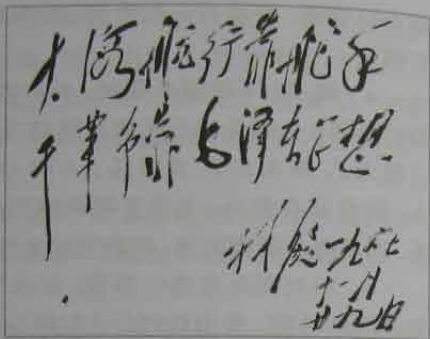 大海航行靠舵手
干革命靠毛澤东思想
林彪一九六七
十一月
廿九日